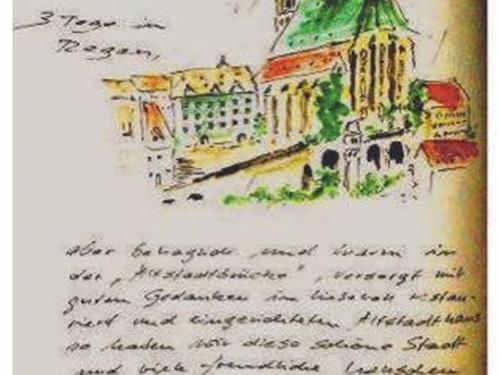 3 Tage in
Regen,
aber behaglich und warm in
der "Altstadtbrücke", versorgt mit
guten Gedanken im liebevoll restau-
riert und eingerichteten Altstadthaus
so haben wir diese schöne Stadt
und viele freundliche Menschen